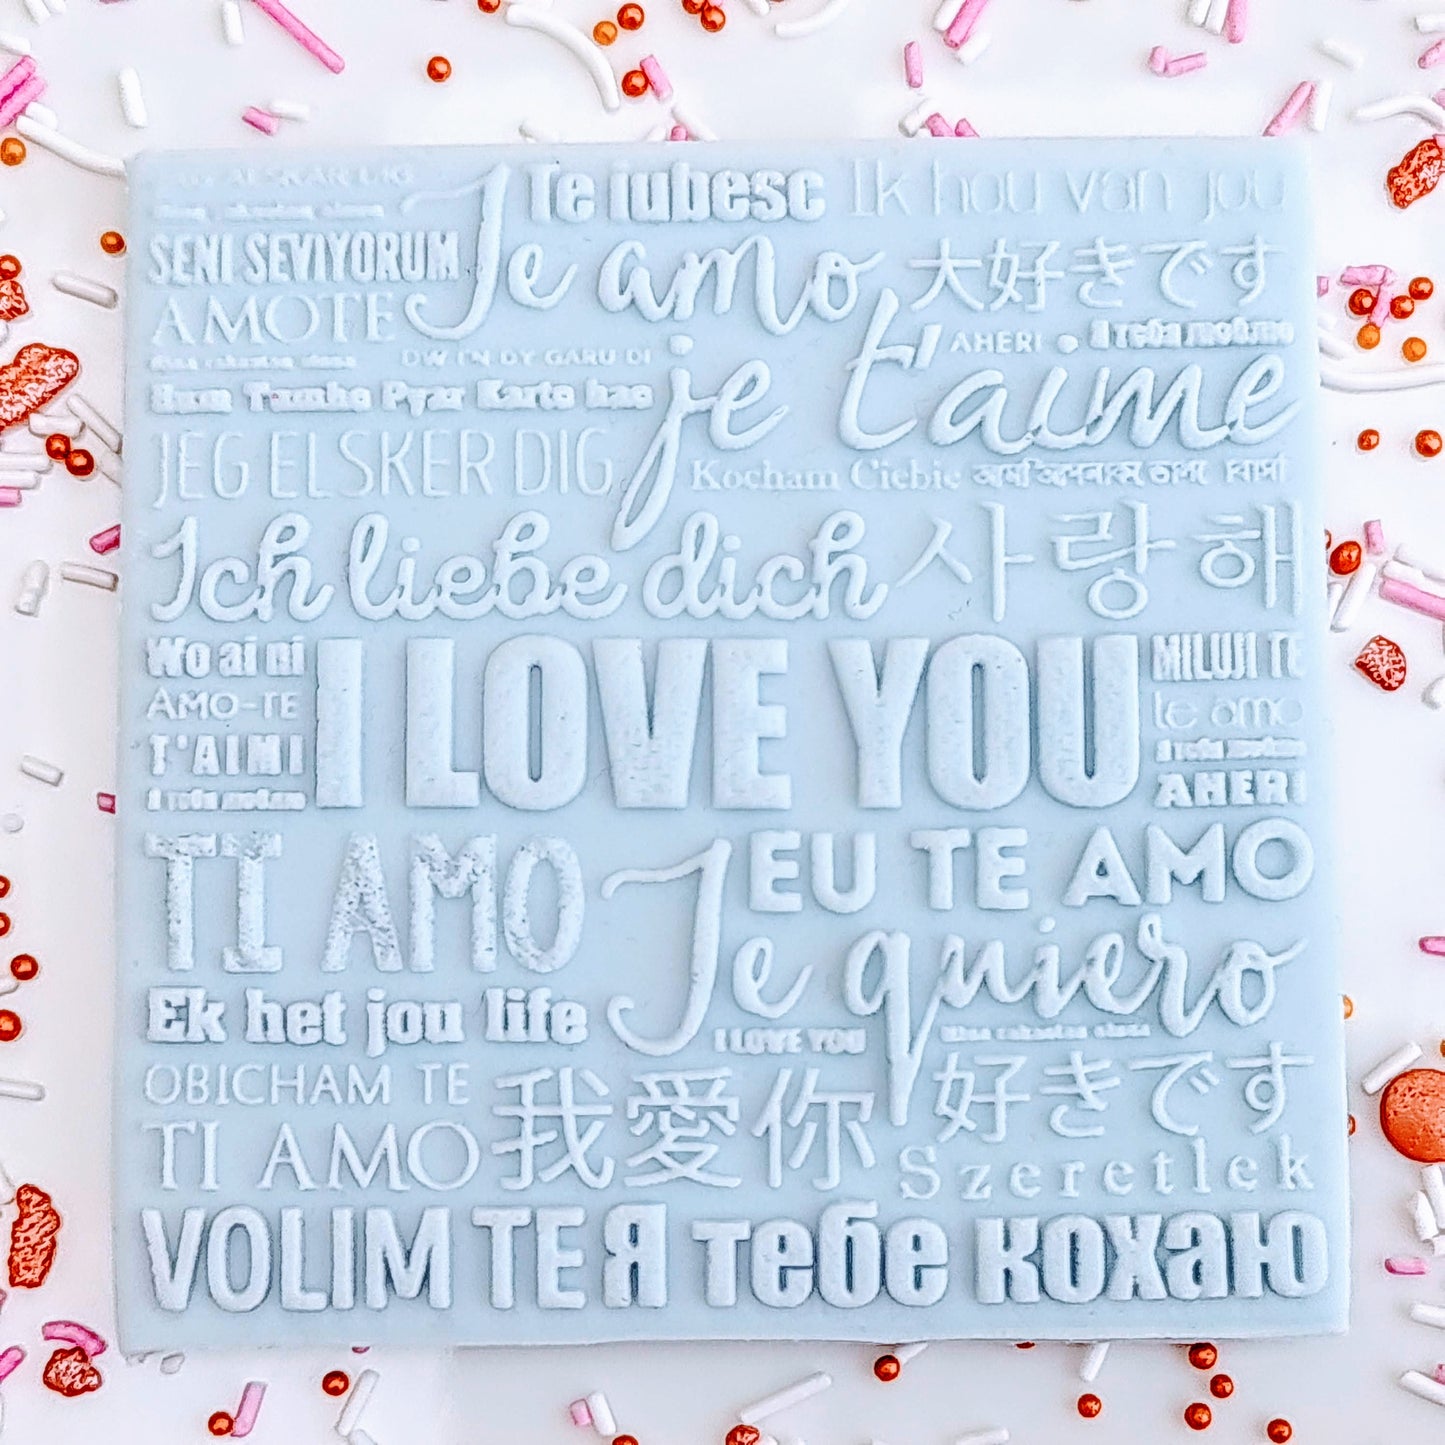 Te iubesc
Ik hou van jou
SENI SEVIYORUM
Te amo
大好きです
AMO TE
DW I'N DY GARU DI
je t'aime
AHERI
Я тебя люблю
Hum Tumhe Pyar Karte hae
JEG ELSKER DIG
Kocham Ciebie
Ich liebe dich
사랑해
Wo ai ni
I LOVE YOU
MILUJI TE
AMO-TE
te amo
T'AIMI
AHERI
TI AMO
EU TE AMO
Te quiero
Ek het jou life
I LOVE YOU
OBICHAM TE
我愛你
好きです
TI AMO
Szeretlek
VOLIM TE
Я тебе кохаю